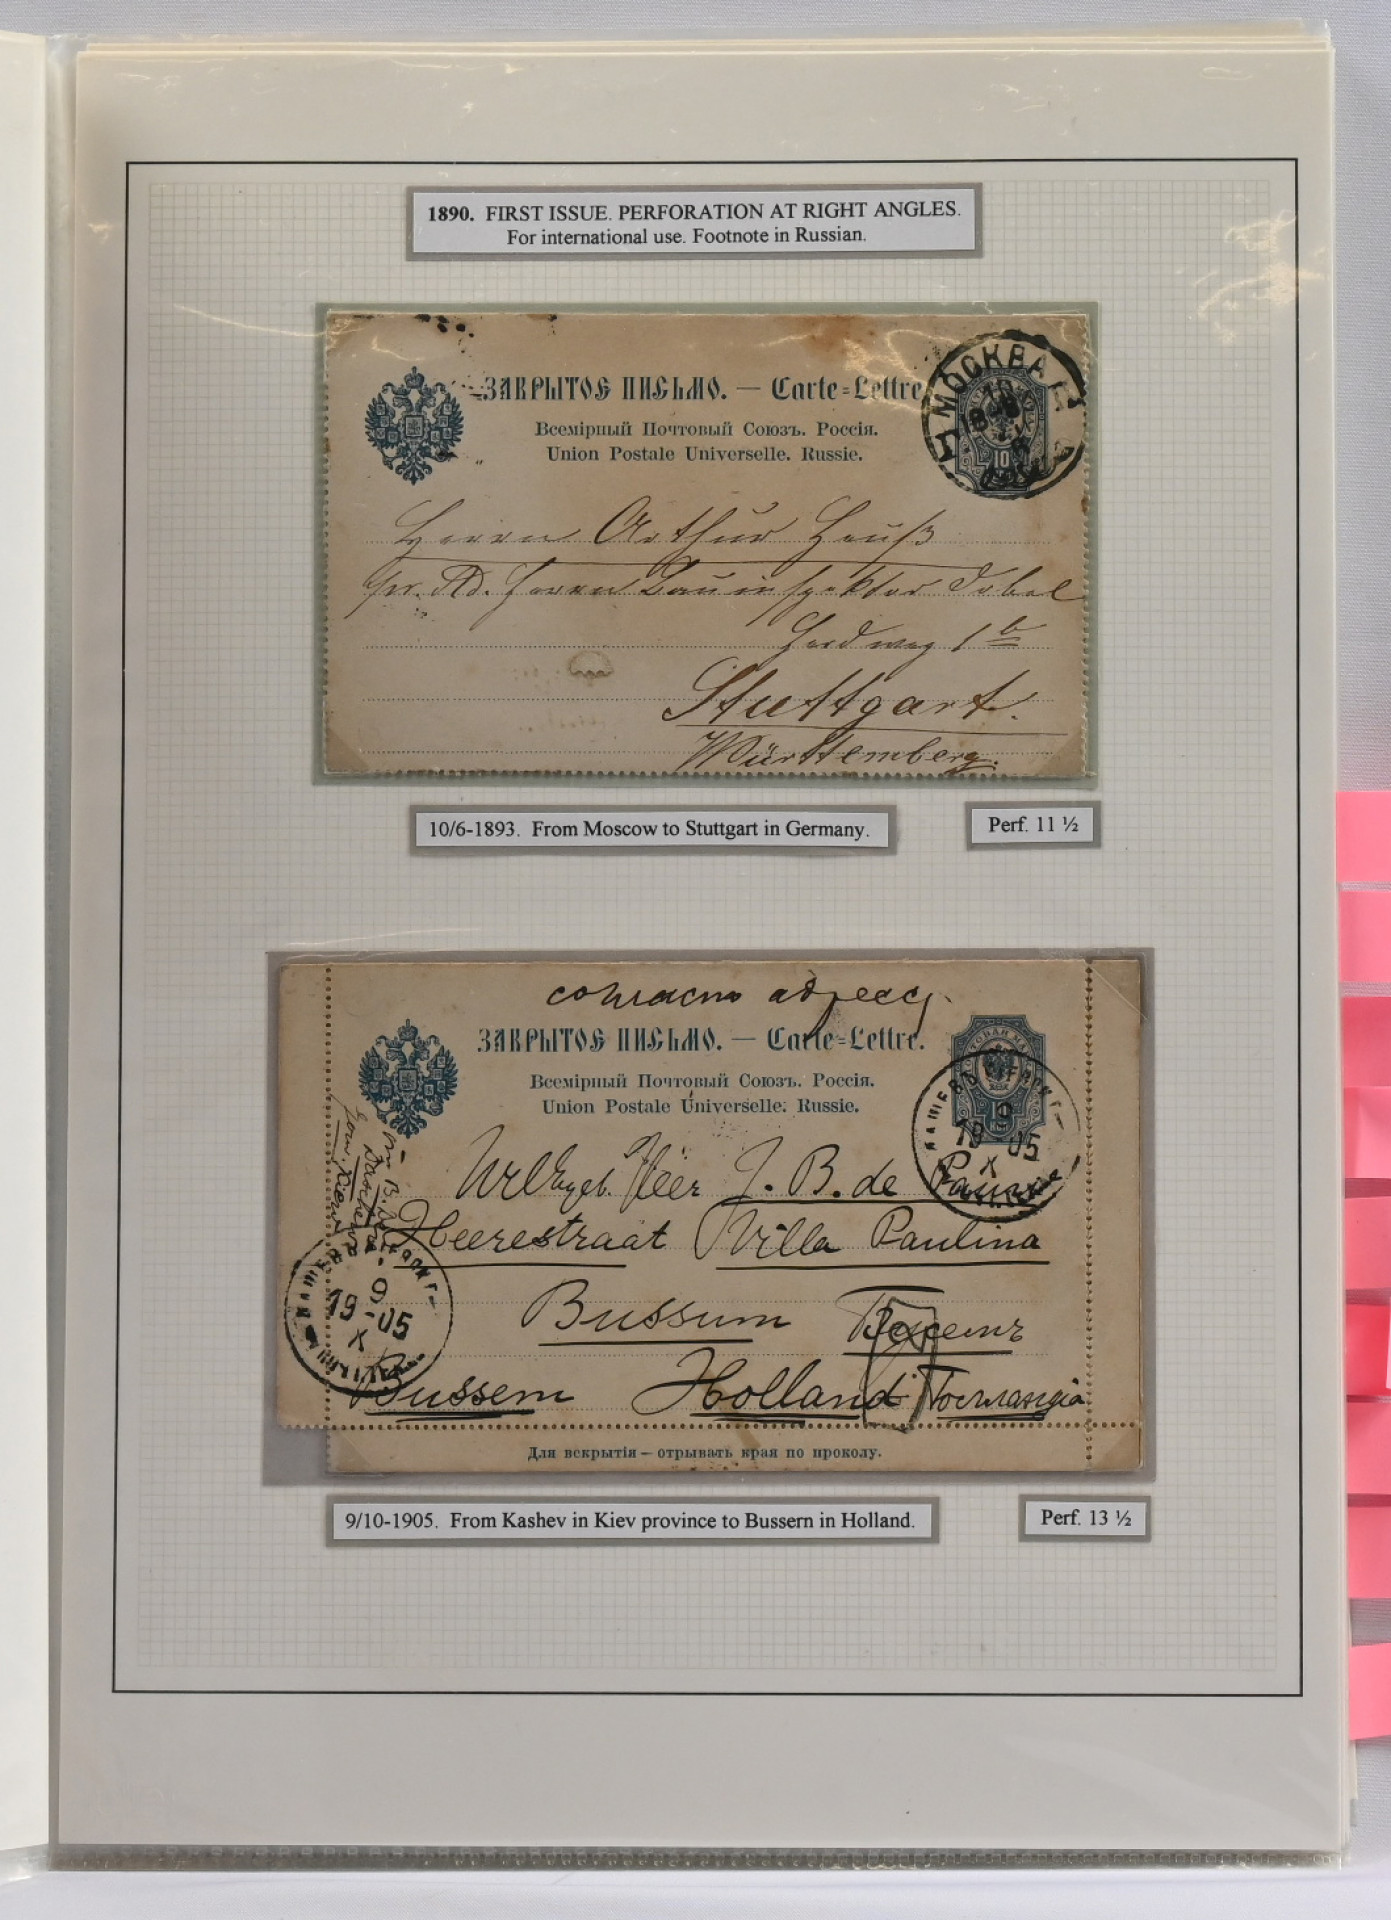 1890. FIRST ISSUE. PERFORATION AT RIGHT ANGLES.
For international use. Footnote in Russian.
ЗАКРЫТОЕ ПИСЬМО. — Carte-Lettre
Всемірный Почтовый Союзъ. Россія.
Union Postale Universelle. Russie.
МОСКВА
10
Herrn Arthur Hauß
pr. Ad. Herrn Bauinspektor Tobel
Herdweg 1b
Stuttgart.
Württemberg.
10/6-1893. From Moscow to Stuttgart in Germany.
Perf. 11 ½
согласно адресу.
ЗАКРЫТОЕ ПИСЬМО. — Carte-Lettre.
Всемірный Почтовый Союзъ. Россія.
Union Postale Universelle. Russie.
9
19-05
X
J. B. de
Heerestraat Villa Paulina
9
19-05
X
Bussum
Bussem Holland Голландія
Для вскрытія — отрывать края по проколу.
9/10-1905. From Kashev in Kiev province to Bussern in Holland.
Perf. 13 ½